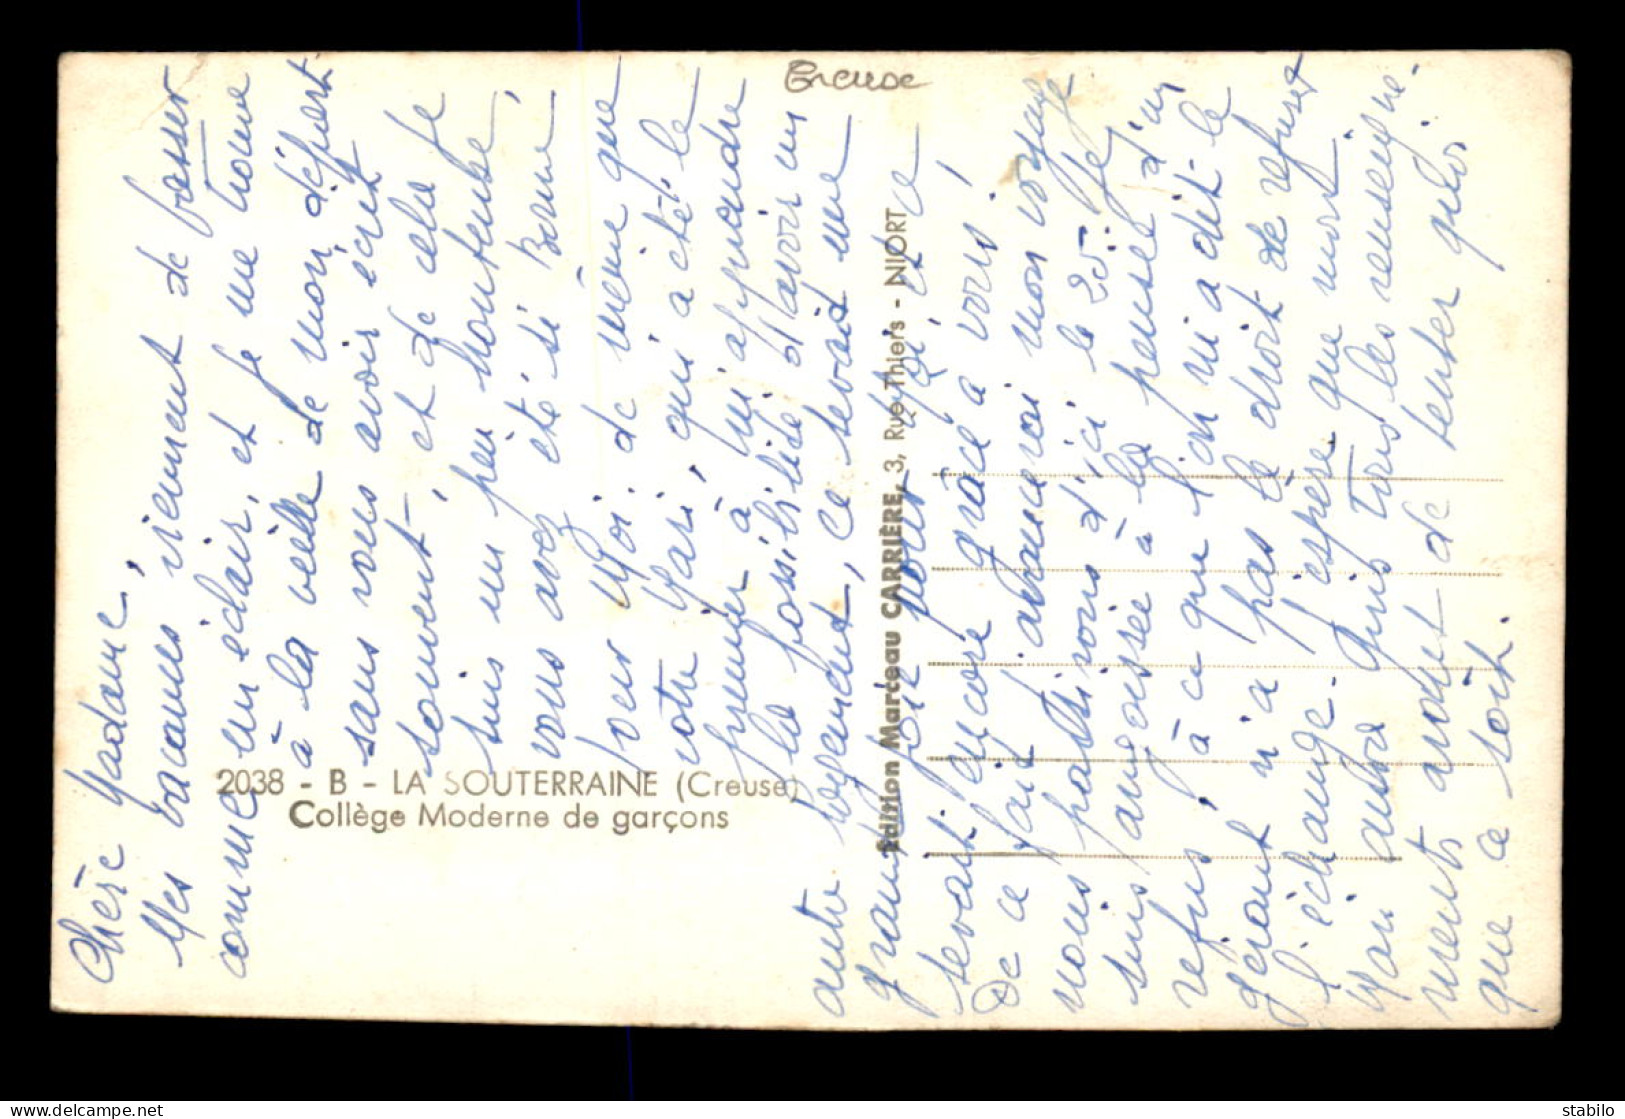 Creuse
Chère Madame,
Mes vacances viennent de passer
comme un éclair, et je me trouve
à la veille de mon départ
sans vous avoir écrit
souvent, et de cela je
suis un peu honteuse,
vous avez été si bonne
pour moi. de même que
votre Mari, qui a été le
premier à m'apprendre
la possibilité d'avoir un
autre logement, ce serait une
grande joie pour et ce
serait encore grâce à vous!
De ce fait j'avancerai mon voyage
nous partirons d'ici le 25. Je
suis angoissée à la pensée d'un
refus, à ce que l'on m'a dit le
gérant n'a pas le droit de refuser
l'échange. J'espère que mon
Mari aura pris tous les renseigne-
ments avant de tenter quoi
que ce soit.
2038 - B - LA SOUTERRAINE (Creuse)
Collège Moderne de garçons
Edition Marceau CARRIÈRE, 3, Rue Thiers - NIORT
stabilo
https://www.delcampe.net